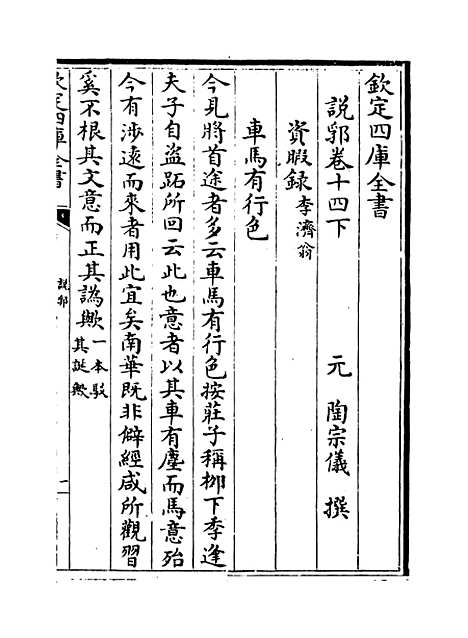 欽定四庫全書
說郛卷十四下
元 陶宗儀 撰
資暇録 李濟翁
車馬有行色
今見將首途者多云車馬有行色按莊子稱栁下季逢
夫子自盜跖所回云此也意者以其車有塵而馬意殆
今有涉遠而來者用此宜矣南華既非僻經咸所觀習
奚不根其文意而正其譌歟一本駁其誕歟
欽定四庫全書
說郛